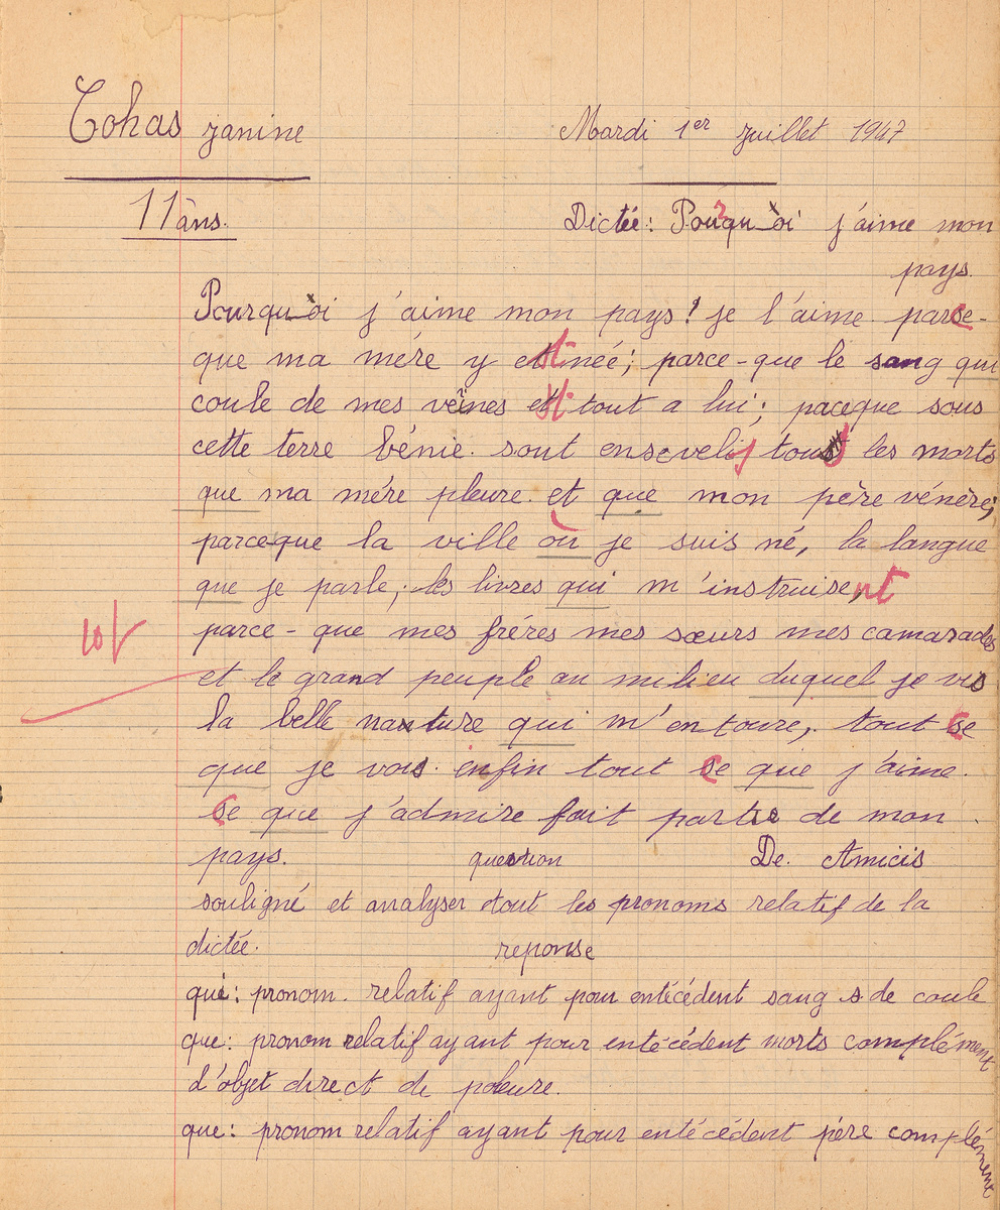 Cohas Janine
Mardi 1er Juillet 1947
11 ans.
Dictée: Pourquoi j'aime mon
pays.
Pourquoi j'aime mon pays! je l'aime parce-
que ma mére y est née; parce-que le sang qui
coule de mes veines est tout a lui; paceque sous
cette terre bénie. sont ensevelis tous les morts
que ma mére pleure. et que mon père vénère;
parce-que la ville où je suis né, la langue
que je parle; les livres qui m'instruisent
parce-que mes fréres mes sœurs mes camarades
et le grand peuple au milieu duquel je vis
la belle nature qui m'entoure, tout ce
que je vois. enfin tout ce que j'aime.
ce que j'admire fait partie de mon
pays. question De. Amicis
souligné et analyser tout les pronoms relatif de la
dictée. reponse
qui: pronom. relatif ayant pour entécédent sang s. de coule
que: pronom relatif ayant pour entécédent morts complément
d'objet direct de pleure.
que: pronom relatif ayant pour entécédent père complément